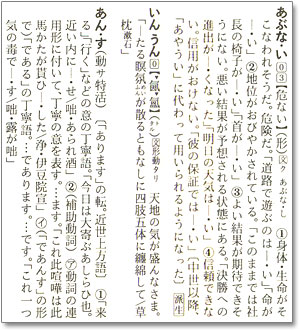 あぶな・い⓪③【危ない】(形)文ク あぶな・し ①身体・生命がそ
こなわれそうだ。危険だ。「道路で遊ぶのは―・い」「命が
―・い」②地位がおびやかされている。「このままでは社
長の椅子が―・い」「首が―・い」③よい結果が期待できそ
うにない。悪い結果が予想される状態にある。「決勝への
進出が―・くなった」「明日の天気は―・い」④信頼できな
い。信用がおけない。「彼の保証では―・い」〔中世以降、
「あやうい」に代わって用いられるようになった〕派生
いんうん⓪【▼氤▼氳】(ト/タル)文形動タリ 天地の気が盛んなさま。
「―たる瞑氛が散るともなしに四肢五体に纏綿して/草
枕漱石」
あん・す(動サ特活)〔「あります」の転。近世上方語〕①「来
る」「行く」などの意の丁寧語。「今日は大寄ぶあしらひも。
近い内に―・せ/咄・あられ酒」②(補助動詞)㋐動詞の連
用形に付いて、丁寧の意を表す。…ます。「これは喧嘩は此
馬かたが貰ひ―・した/浄・伊豆院宣」㋑(「であんす」の形
で)「である」の丁寧語。…であります。…です。「これ一つ
気の毒で―・す/咄・露が咄」